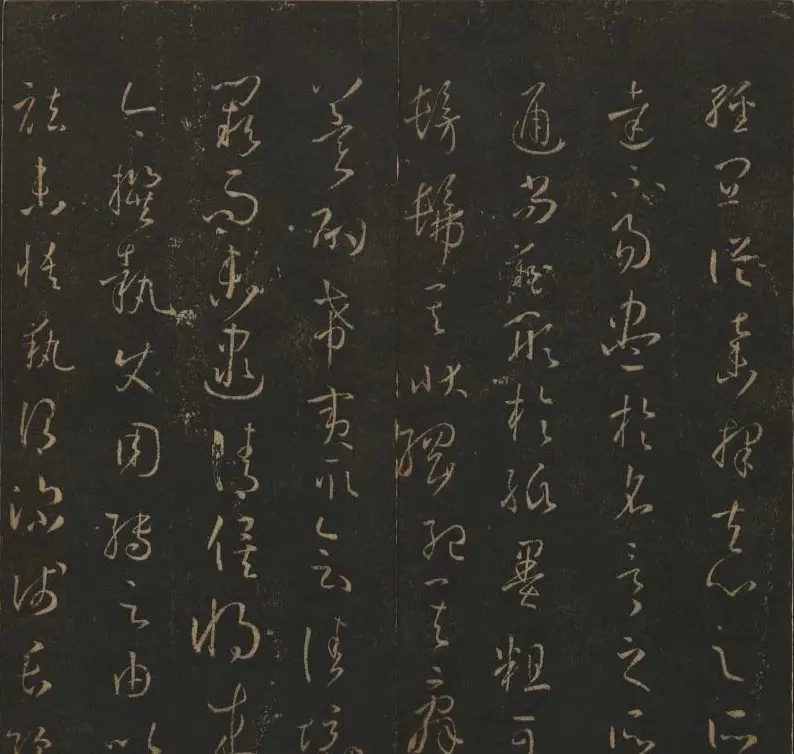 經宜從棄擇夫心之所
達不易盡於名言之所
通尚難形於紙墨粗可
髣髴其狀綱紀其辭
冀酌希夷取會佳境
闕而未逮請俟將來
今撰執使用轉之由以
祛未悟執謂深淺長短